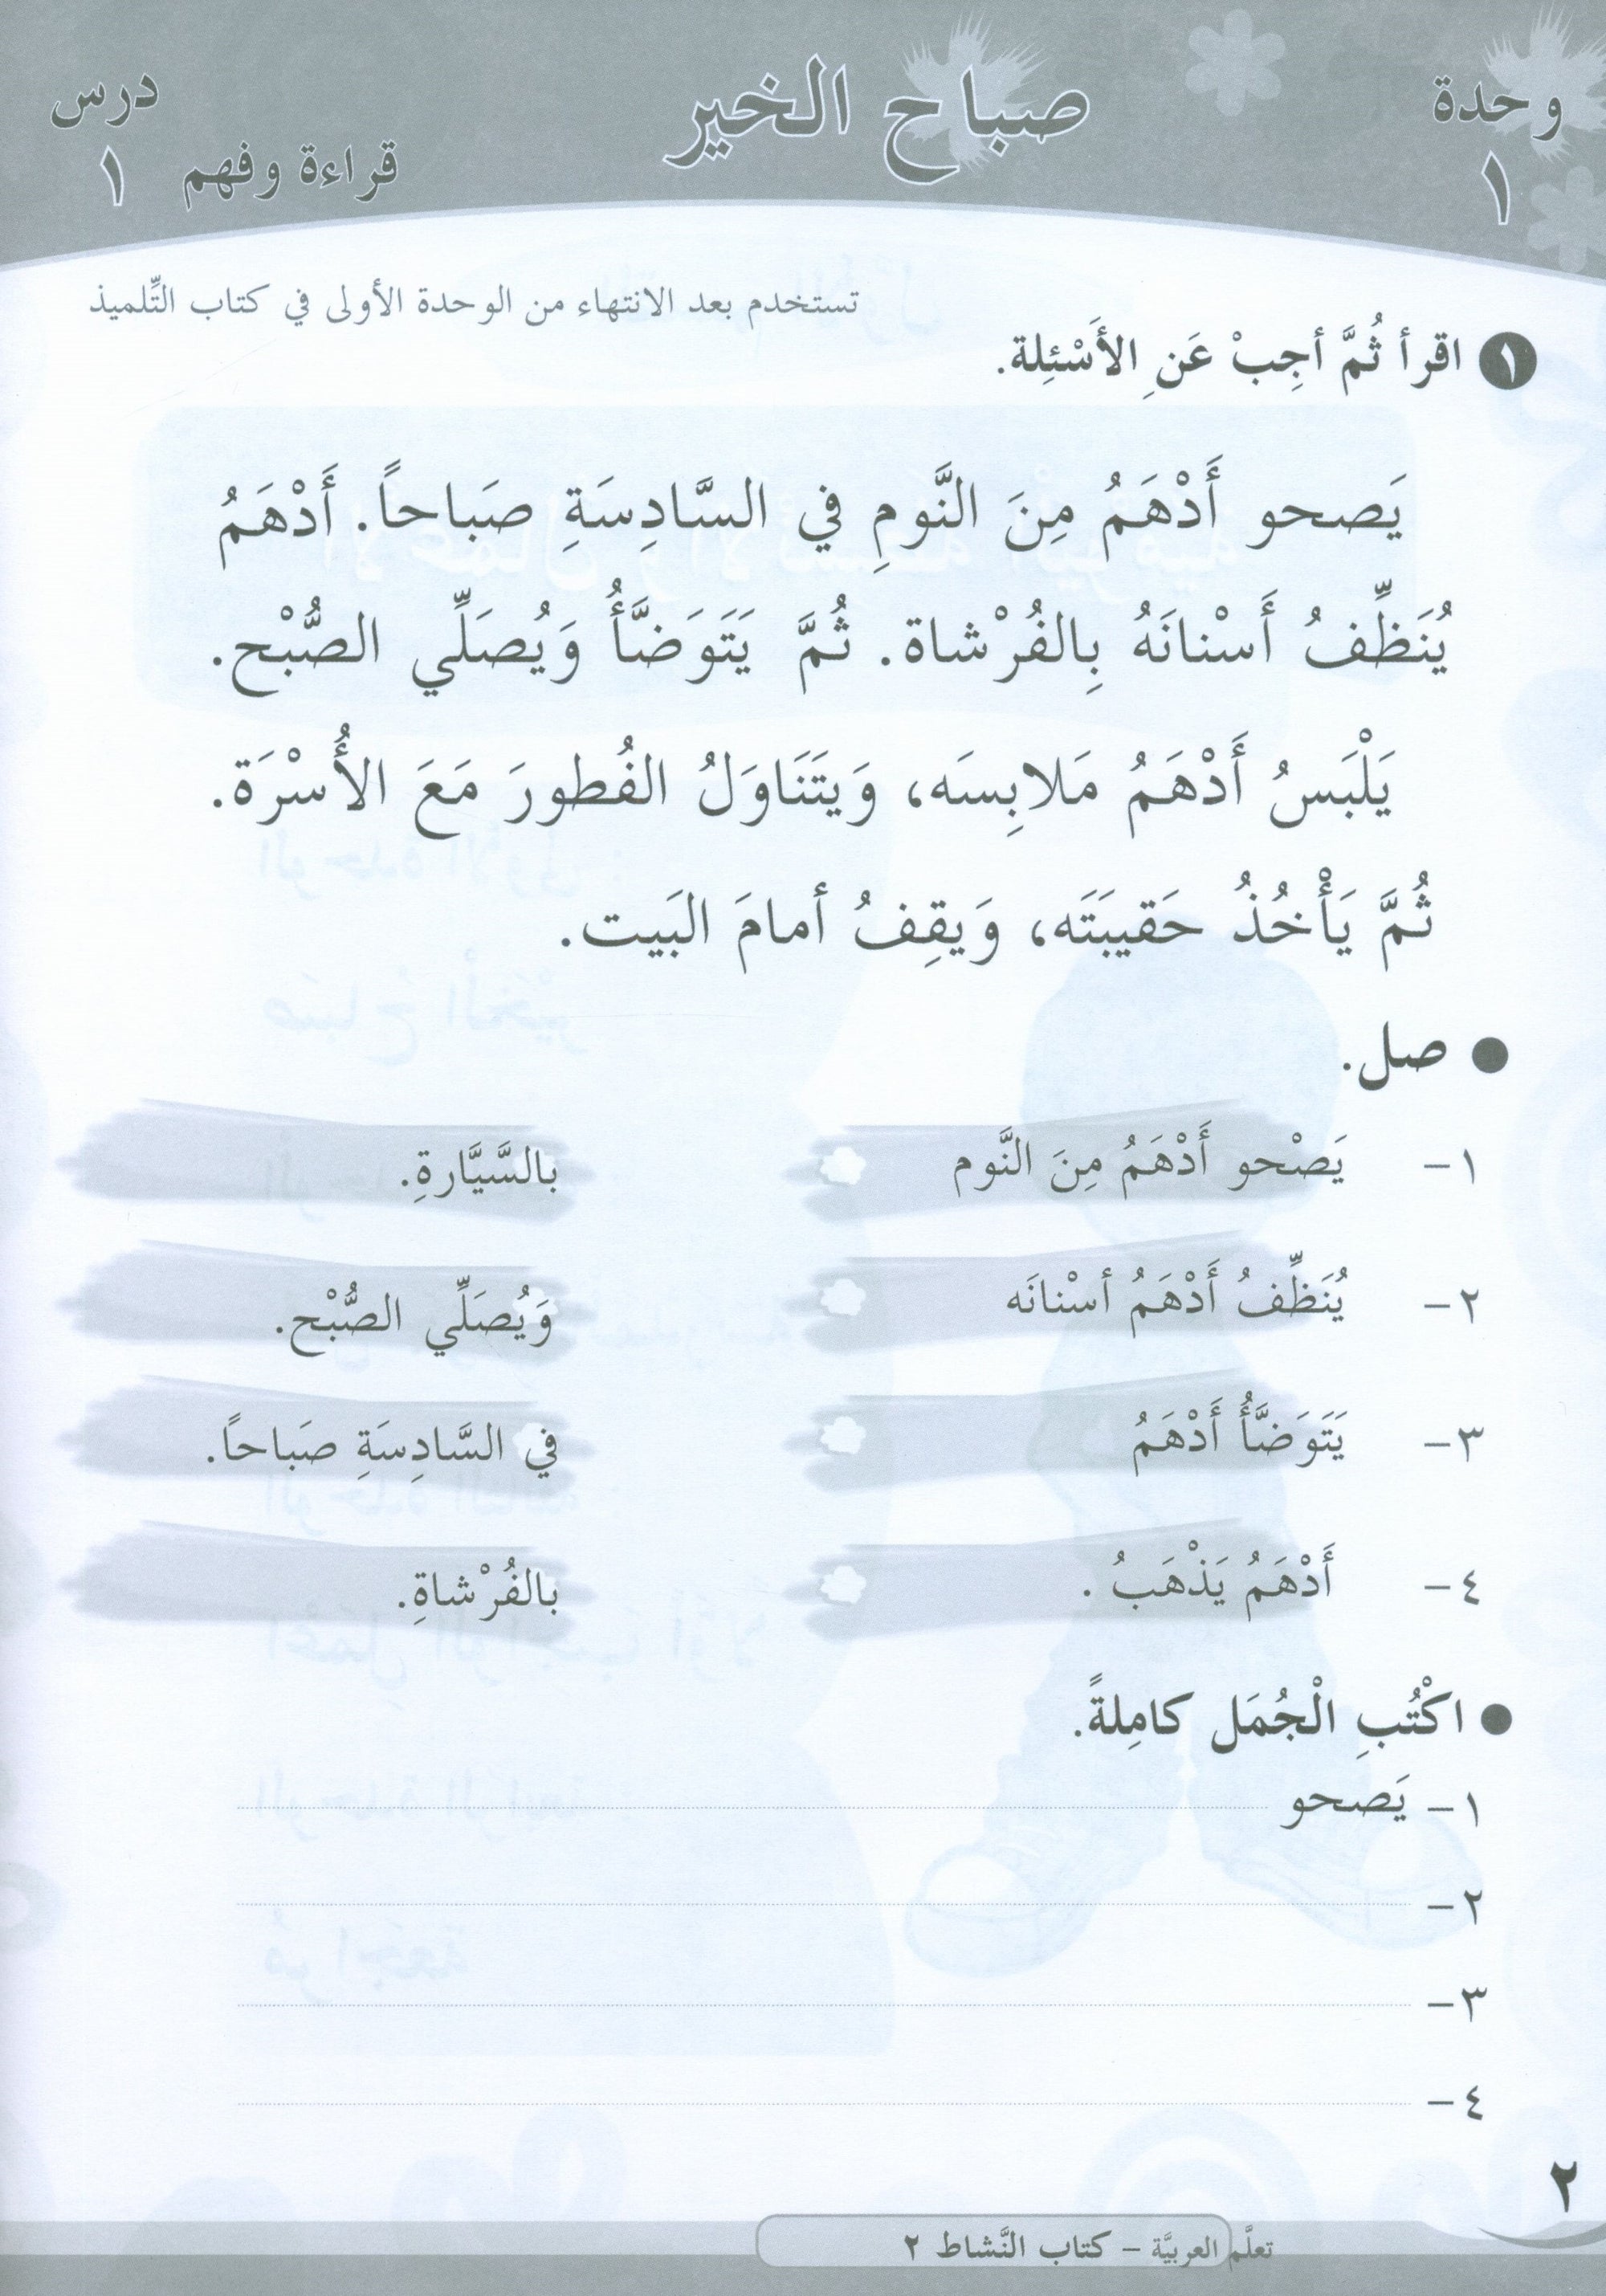 وحدة
١
صباح الخير
درس
قراءة وفهم ١
تستخدم بعد الانتهاء من الوحدة الأولى في كتاب التِّلميذ
١ اقرأ ثُمَّ أجِبْ عَنِ الأَسْئِلة.
يَصحو أَدْهَمُ مِنَ النَّومِ في السَّادِسَةِ صَباحاً. أَدْهَمُ
يُنَظِّفُ أَسْنانَهُ بِالفُرْشاة. ثُمَّ يَتَوَضَّأُ وَيُصَلِّي الصُّبْح.
يَلْبَسُ أَدْهَمُ مَلابِسَه، وَيَتَنَاوَلُ الفُطورَ مَعَ الأُسْرَة.
ثُمَّ يَأْخُذُ حَقيبَتَه، وَيقِفُ أمامَ البَيت.
● صل.
١– يَصْحو أَدْهَمُ مِنَ النَّوم بالسَّيَّارةِ.
٢– يُنَظِّفُ أَدْهَمُ أسْنانَه وَيُصَلِّي الصُّبْح.
٣– يَتَوَضَّأُ أَدْهَمُ في السَّادِسَةِ صَباحاً.
٤– أَدْهَمُ يَذْهَبُ . بالفُرْشاةِ.
● اكْتُبِ الْجُمَل كامِلةً.
١– يَصحو
٢–
٣–
٤–
٢
تعلَّم العربيَّة – كتاب النَّشاط ٢